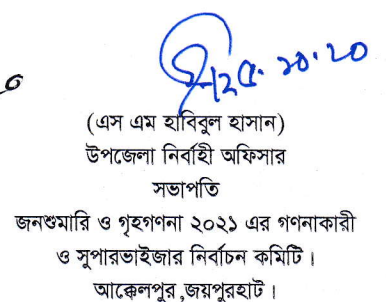 ২৫.১০.২০
(এস এম হাবিবুল হাসান)
উপজেলা নির্বাহী অফিসার
সভাপতি
জনশুমারি ও গৃহগণনা ২০২১ এর গণনাকারী
ও সুপারভাইজার নির্বাচন কমিটি।
আক্কেলপুর ,জয়পুরহাট।